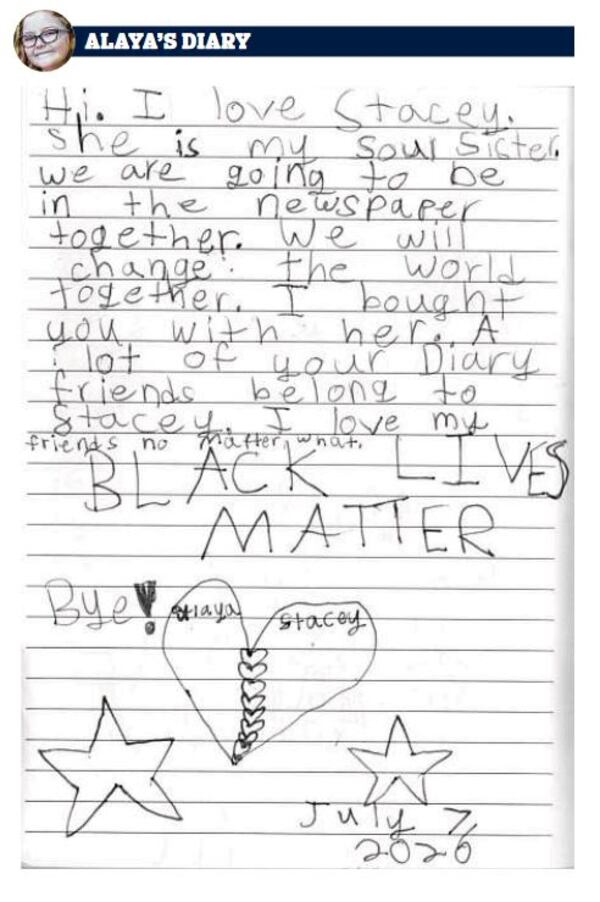 ALAYA'S DIARY
Hi. I love Stacey.
She is my Soul Sister.
we are going to be
in the newspaper
together. We will
change the world
together. I bought
you with her. A
lot of your Diary
friends belong to
Stacey. I love my
friends no matter what.
BLACK LIVES
MATTER
Bye!
Alaya
Stacey
July 7,
2020